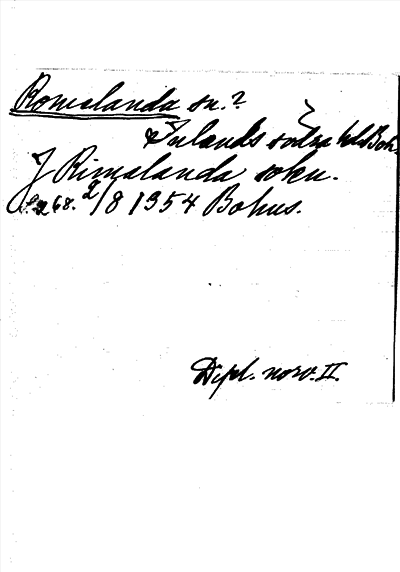 Romelanda sn.?
Inlands södra hd Boh.
J Rimalanda sokn.
S. 268. 2/8 1354 Bohus.
Dipl. norv. II.